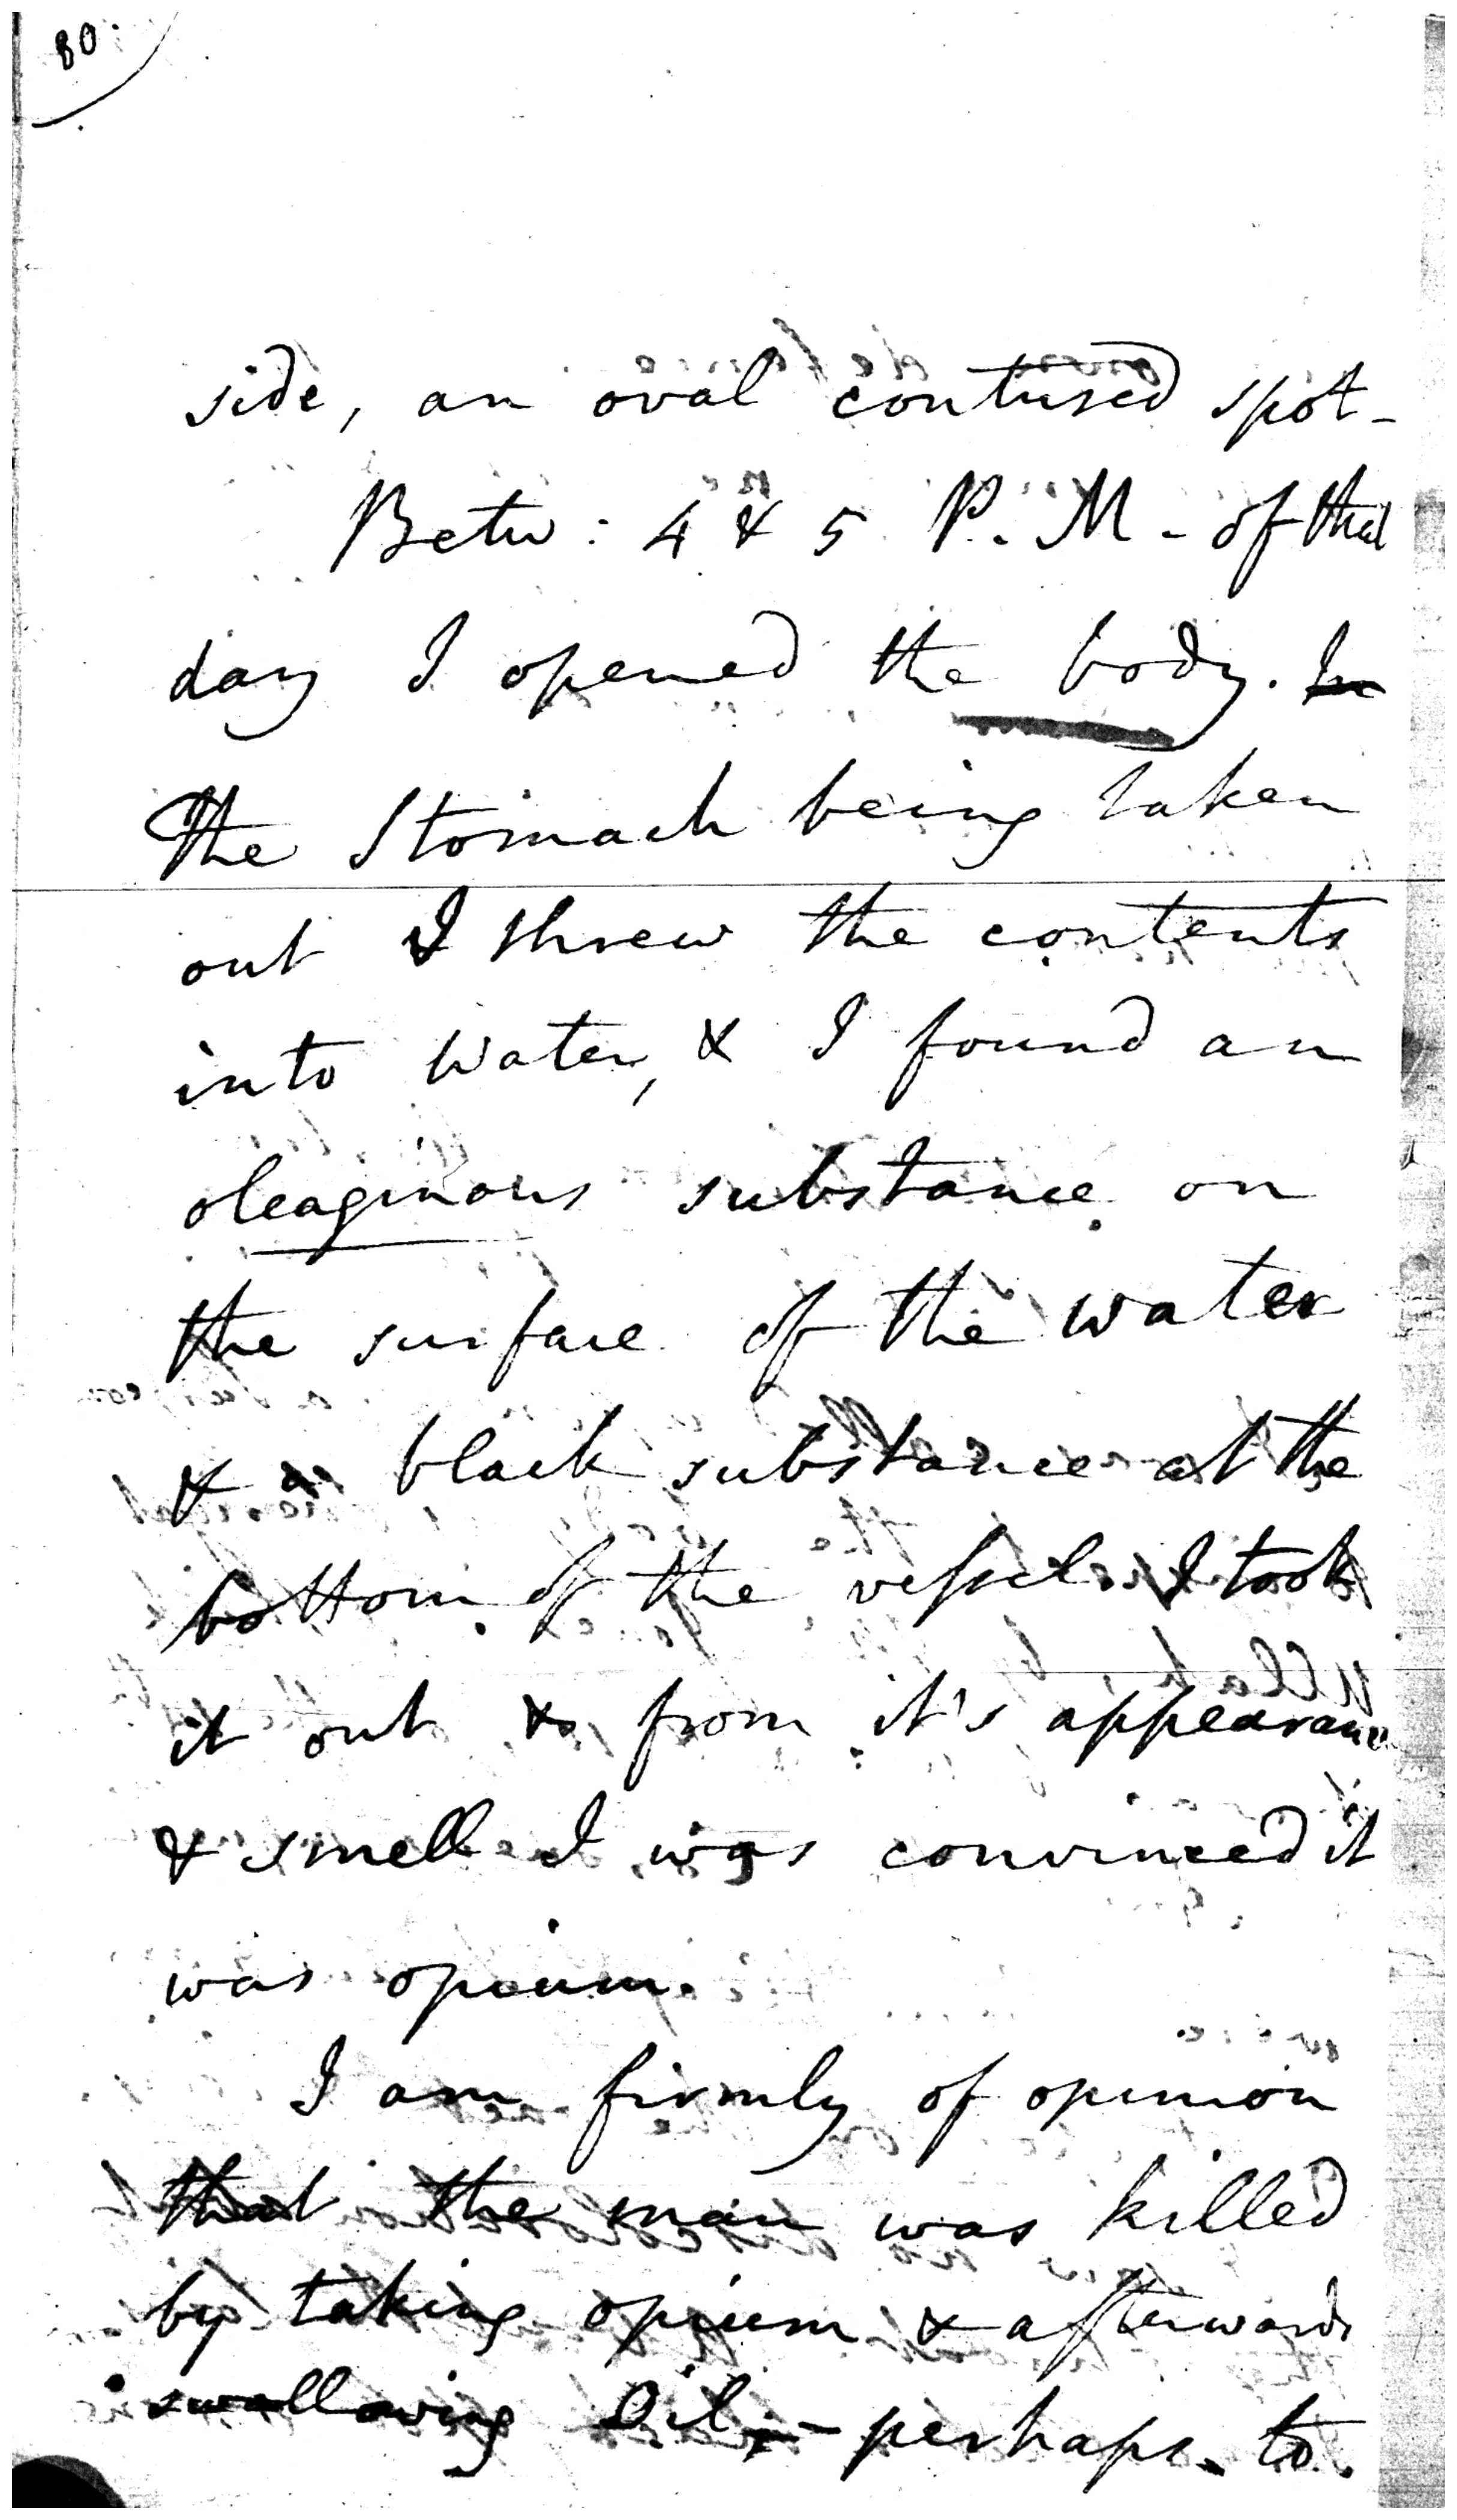 80
side, an oval contused spot -
Betw: 4 & 5 P. M - of that
day I opened the body. In
The Stomach being taken
out I threw the contents
into water, & I found an
oleaginous substance on
the surface of the water
& a black substance at the
bottom of the vessel. I took
it out & from it's appearance
& smell I was convinced it
was opium.
I am firmly of opinion
that the man was killed
by taking opium & afterwards
swallowing Oil, - perhaps to